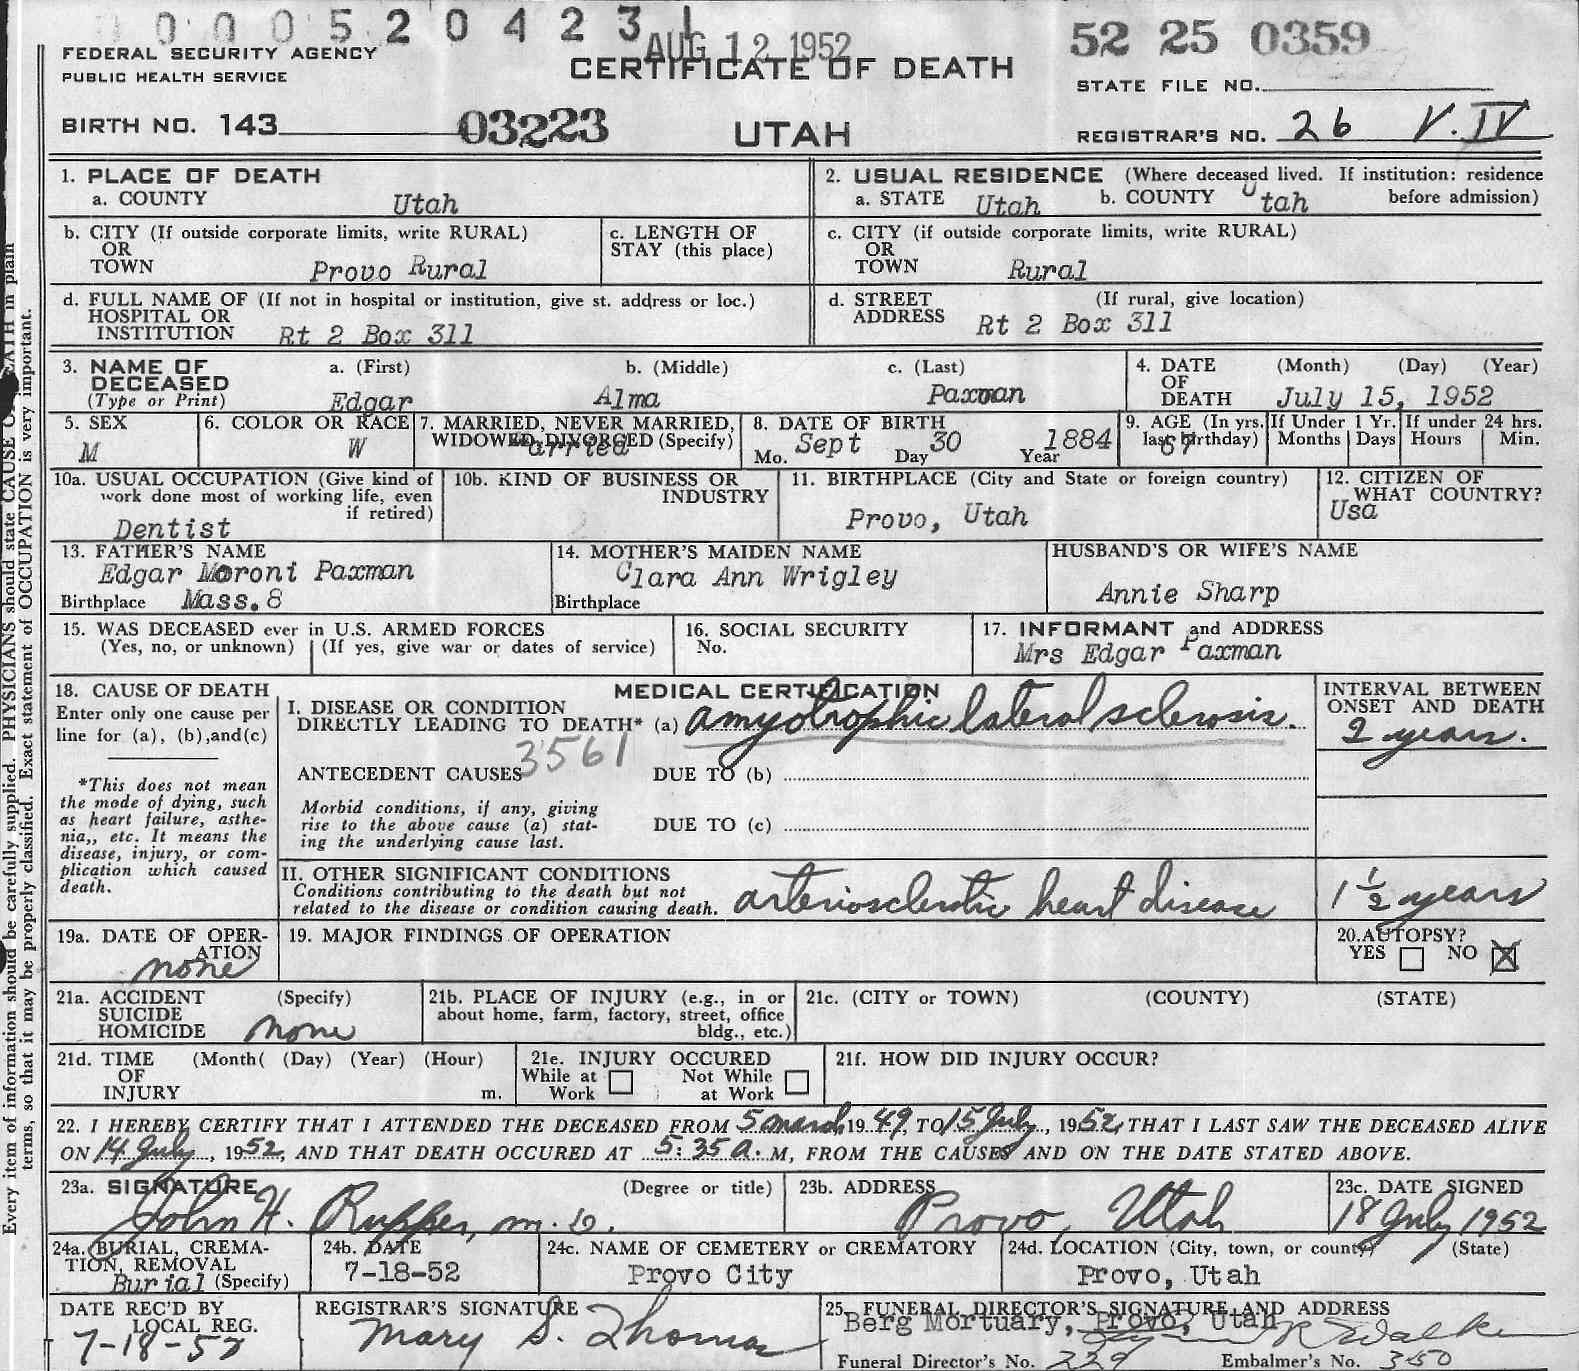 0 0 0 5 2 0 4 2 3 1
AUG 12 1952
52 25 0359
FEDERAL SECURITY AGENCY
PUBLIC HEALTH SERVICE
CERTIFICATE OF DEATH
STATE FILE NO.
BIRTH NO. 143 03223
UTAH
REGISTRAR'S NO. 26 V. IV
1. PLACE OF DEATH
a. COUNTY Utah
2. USUAL RESIDENCE (Where deceased lived. If institution: residence before admission)
a. STATE Utah b. COUNTY Utah
b. CITY (If outside corporate limits, write RURAL)
OR
TOWN Provo Rural
c. LENGTH OF
STAY (this place)
c. CITY (if outside corporate limits, write RURAL)
OR
TOWN Rural
d. FULL NAME OF (If not in hospital or institution, give st. address or loc.)
HOSPITAL OR
INSTITUTION Rt 2 Box 311
d. STREET (If rural, give location)
ADDRESS Rt 2 Box 311
3. NAME OF
DECEASED
(Type or Print)
a. (First) b. (Middle) c. (Last)
Edgar Alma Paxman
4. DATE (Month) (Day) (Year)
OF
DEATH July 15, 1952
5. SEX
M
6. COLOR OR RACE
W
7. MARRIED, NEVER MARRIED,
WIDOWED, DIVORCED (Specify)
Married
8. DATE OF BIRTH
Mo. Sept Day 30 Year 1884
9. AGE (In yrs. last birthday) 67
If Under 1 Yr.
Months Days
If under 24 hrs.
Hours Min.
10a. USUAL OCCUPATION (Give kind of
work done most of working life, even
if retired)
Dentist
10b. KIND OF BUSINESS OR
INDUSTRY
11. BIRTHPLACE (City and State or foreign country)
Provo, Utah
12. CITIZEN OF
WHAT COUNTRY?
Usa
13. FATHER'S NAME
Edgar Moroni Paxman
Birthplace Mass. 8
14. MOTHER'S MAIDEN NAME
Clara Ann Wrigley
Birthplace
HUSBAND'S OR WIFE'S NAME
Annie Sharp
15. WAS DECEASED ever in U.S. ARMED FORCES
(Yes, no, or unknown) (If yes, give war or dates of service)
16. SOCIAL SECURITY
No.
17. INFORMANT and ADDRESS
Mrs Edgar Paxman
18. CAUSE OF DEATH
Enter only one cause per
line for (a), (b),and(c)
*This does not mean
the mode of dying, such
as heart failure, asthe-
nia,, etc. It means the
disease, injury, or com-
plication which caused
death.
MEDICAL CERTIFICATION
I. DISEASE OR CONDITION
DIRECTLY LEADING TO DEATH* (a) amyotrophic lateral sclerosis.
3561
ANTECEDENT CAUSES DUE TO (b)
Morbid conditions, if any, giving
rise to the above cause (a) stat-
ing the underlying cause last.
DUE TO (c)
INTERVAL BETWEEN
ONSET AND DEATH
2 years.
II. OTHER SIGNIFICANT CONDITIONS
Conditions contributing to the death but not
related to the disease or condition causing death. arteriosclerotic heart disease
1 1/2 years
19a. DATE OF OPER-
ATION
none
19. MAJOR FINDINGS OF OPERATION
20. AUTOPSY?
YES NO X
21a. ACCIDENT (Specify)
SUICIDE
HOMICIDE none
21b. PLACE OF INJURY (e.g., in or
about home, farm, factory, street, office
bldg., etc.)
21c. (CITY or TOWN) (COUNTY) (STATE)
21d. TIME (Month( (Day) (Year) (Hour)
OF
INJURY m.
21e. INJURY OCCURED
While at Work Not While at Work
21f. HOW DID INJURY OCCUR?
22. I HEREBY CERTIFY THAT I ATTENDED THE DECEASED FROM 5 March, 19 49, TO 15 July, 1952, THAT I LAST SAW THE DECEASED ALIVE
ON 14 July, 1952, AND THAT DEATH OCCURED AT 5:35 A. M, FROM THE CAUSES AND ON THE DATE STATED ABOVE.
23a. SIGNATURE (Degree or title)
John H. Rupper, M.D.
23b. ADDRESS
Provo, Utah
23c. DATE SIGNED
18 July 1952
24a. BURIAL, CREMA-
TION, REMOVAL
Burial (Specify)
24b. DATE
7-18-52
24c. NAME OF CEMETERY or CREMATORY
Provo City
24d. LOCATION (City, town, or county) (State)
Provo, Utah
DATE REC'D BY
LOCAL REG.
7-18-52
REGISTRAR'S SIGNATURE
Mary S. Thomas
25. FUNERAL DIRECTOR'S SIGNATURE AND ADDRESS
Berg Mortuary, Provo, Utah
Funeral Director's No. 229 Embalmer's No. 350
Every item of information should be carefully supplied. PHYSICIANS should state CAUSE OF DEATH in plain
terms, so that it may be properly classified. Exact statement of OCCUPATION is very important.